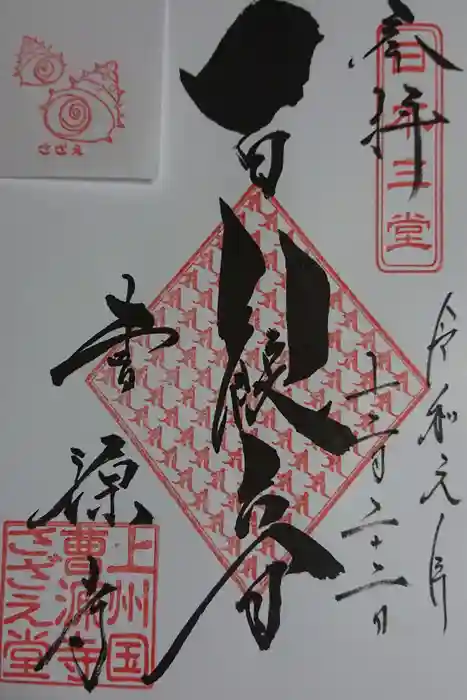 奉拝
日本三堂
令和元年
十二月二十二日
百観音
曹源寺
上州国
曹源寺
さざえ堂
さざえ